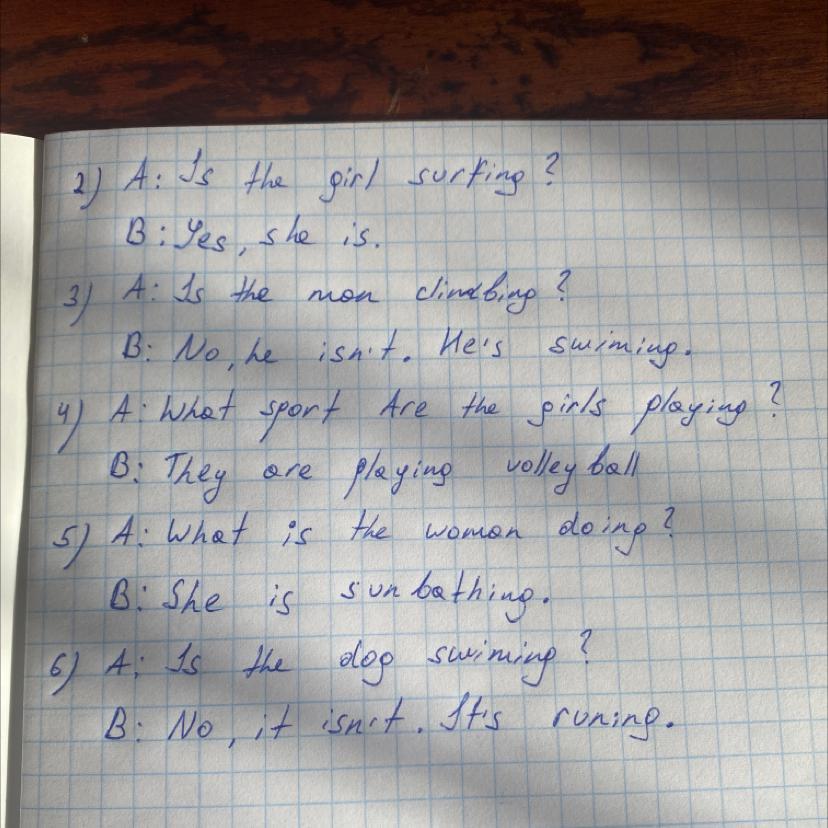 2) A: Is the girl surfing?
B: Yes, she is.
3) A: Is the man climbing?
B: No, he isn't. He's swiming.
4) A: What sport Are the girls playing?
B: They are playing volley ball
5) A: What is the woman doing?
B: She is sun bathing.
6) A: Is the dog swiming?
B: No, it isn't. It's runing.